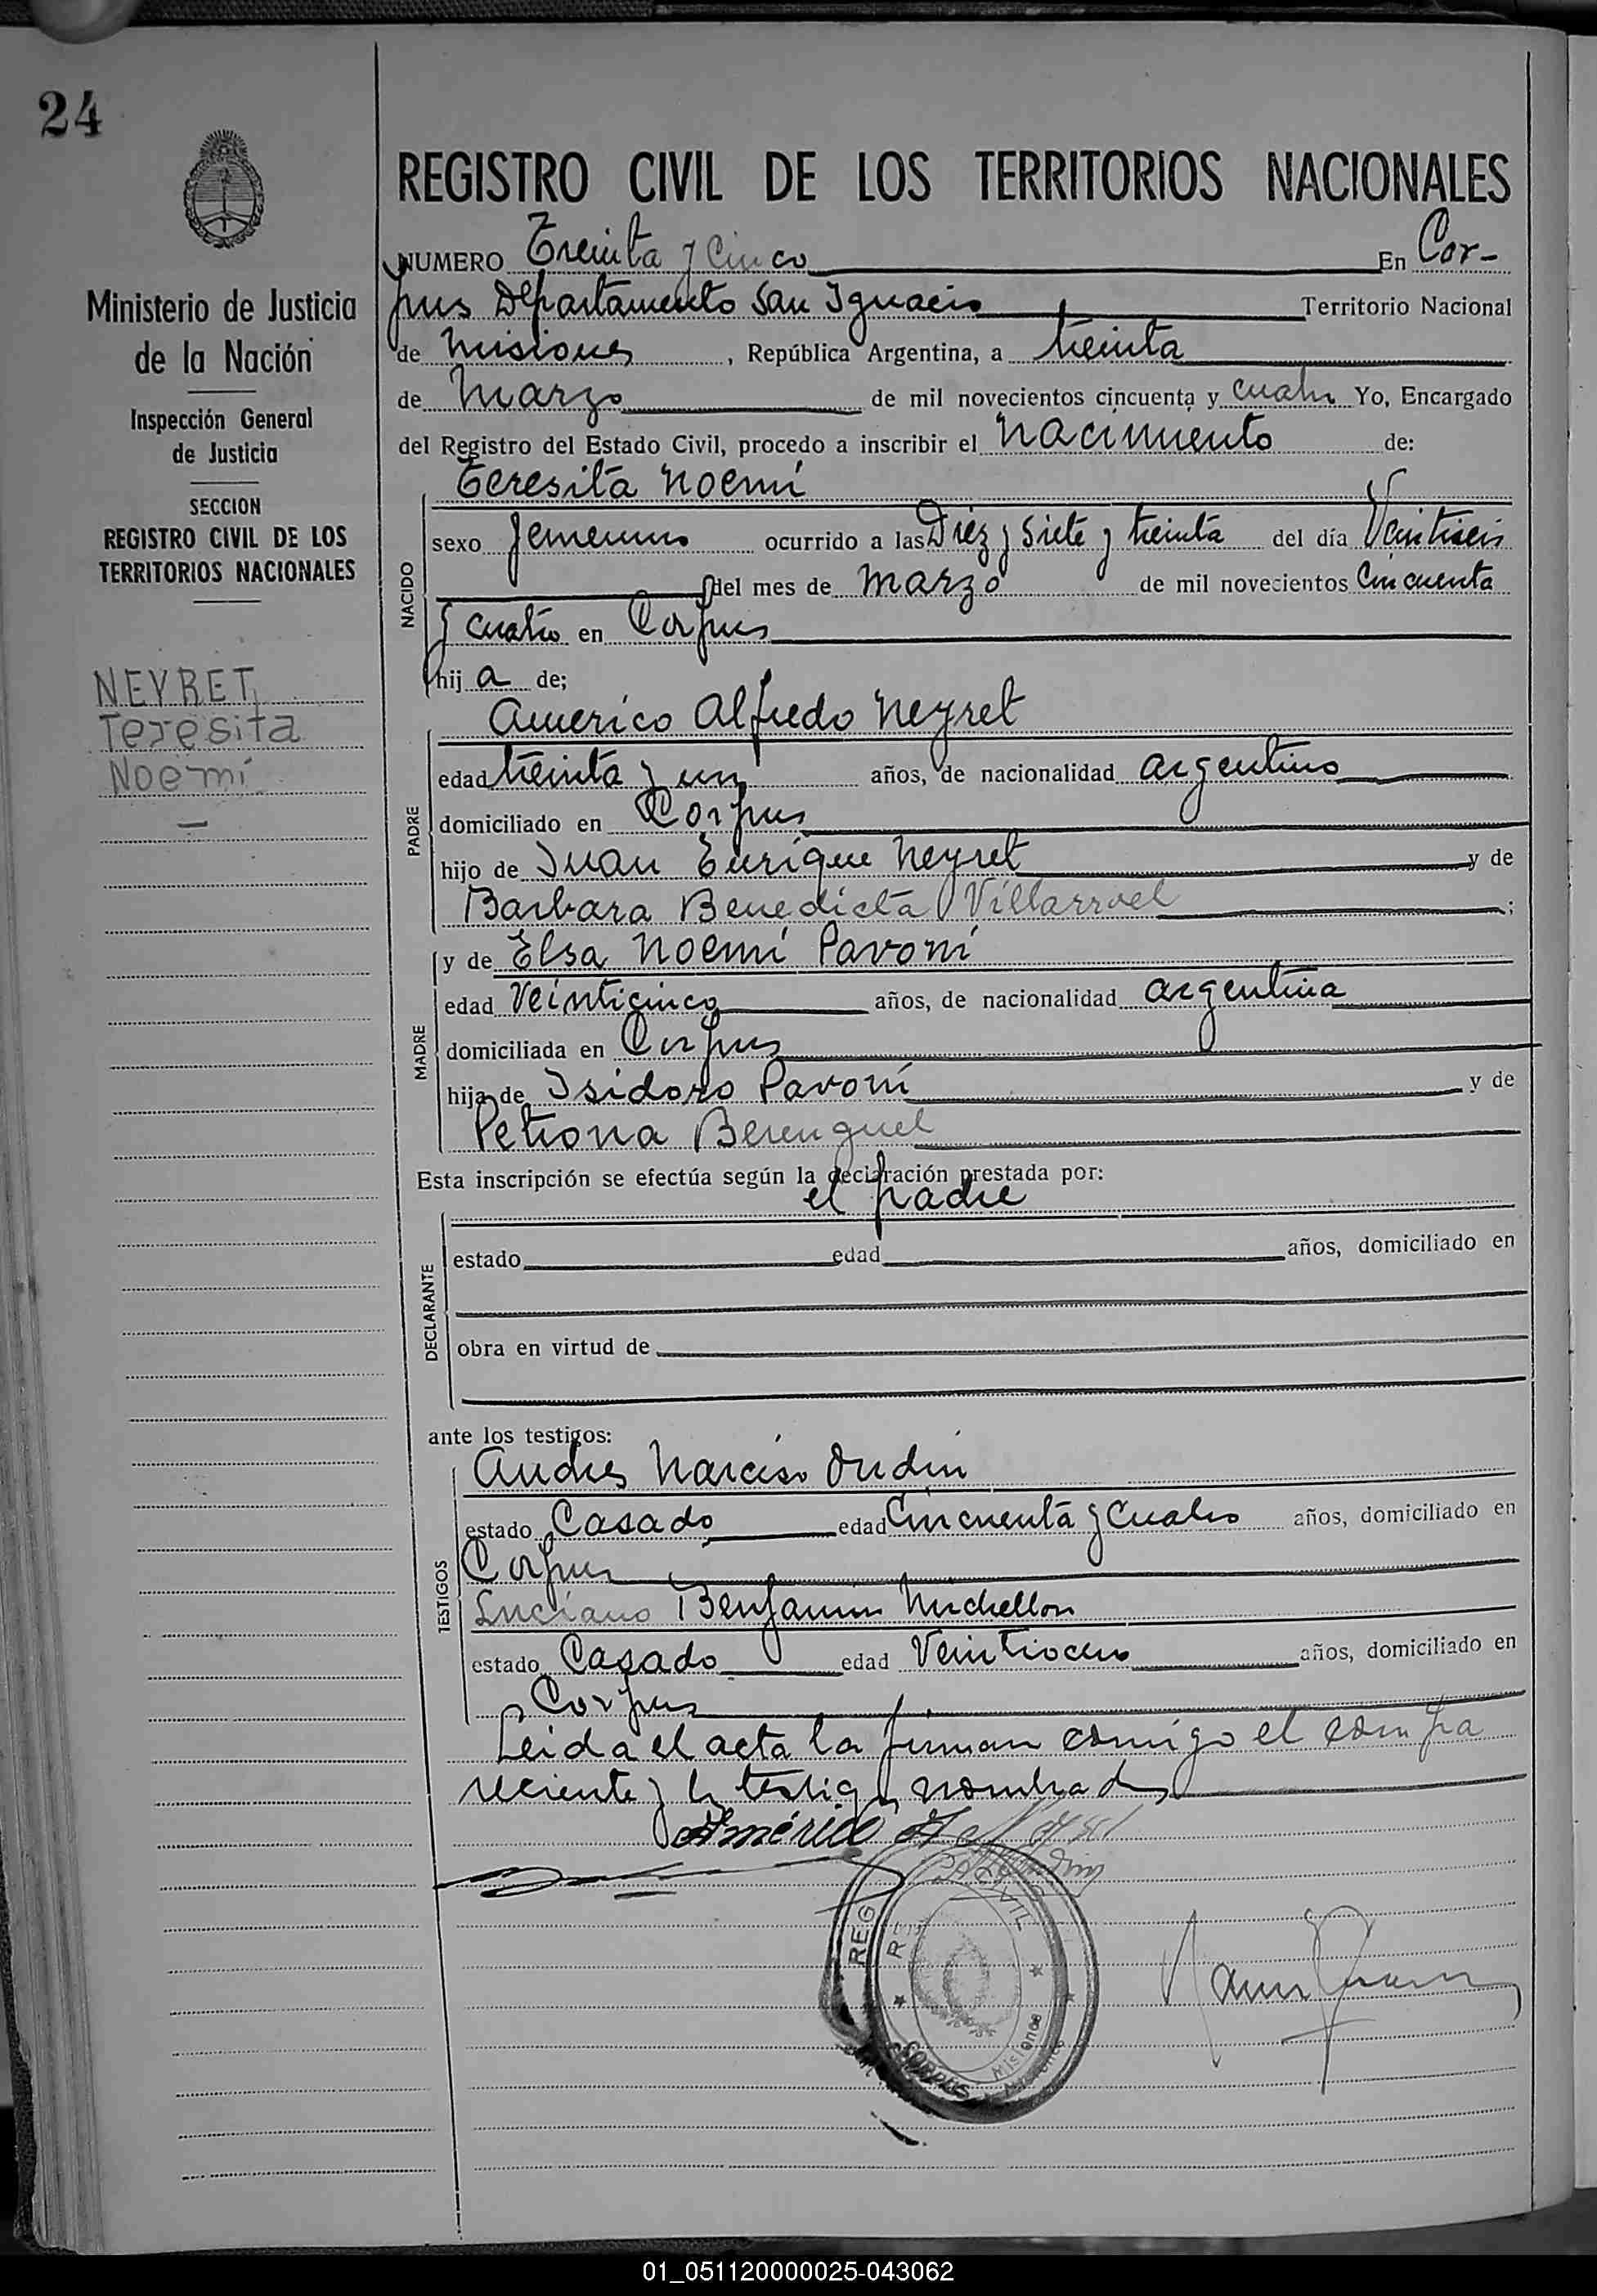 24
Ministerio de Justicia
de la Nación
Inspección General
de Justicia
SECCION
REGISTRO CIVIL DE LOS
TERRITORIOS NACIONALES
NEYRET
Teresita
Noemí
REGISTRO CIVIL DE LOS TERRITORIOS NACIONALES
NUMERO Treinta y Cinco En Cor-
pus Departamento San Ignacio Territorio Nacional
de Misiones, República Argentina, a treinta
de Marzo de mil novecientos cincuenta y cuatro Yo, Encargado
del Registro del Estado Civil, procedo a inscribir el Nacimiento de:
Teresita Noemí
NACIDO
sexo femenino ocurrido a las Diez y Siete y treinta del día Veintiseis
del mes de Marzo de mil novecientos Cincuenta
y cuatro en Corpus
hij a de;
PADRE
Americo Alfredo Neyret
edad treinta y un años, de nacionalidad argentino
domiciliado en Corpus
hijo de Juan Enrique Neyret y de
Barbara Benedicta Villarroel ;
MADRE
y de Elsa Noemí Pavoni
edad Veinticinco años, de nacionalidad argentina
domiciliada en Corpus
hija de Isidoro Pavoni y de
Petrona Berenguel
Esta inscripción se efectúa según la declaración prestada por:
el padre
DECLARANTE
estado edad años, domiciliado en
obra en virtud de
ante los testigos:
TESTIGOS
Andres Narciso Ondin
estado Casado edad Cincuenta y Cuatro años, domiciliado en
Corpus
Luciano Benjamin Michellon
estado Casado edad Veintiocho años, domiciliado en
Corpus
Leida el acta la firman comigo el compa
reciente y los testigos nombrados
Américo A. Neyret
REG
CORPUS
Misiones
01_051120000025-043062